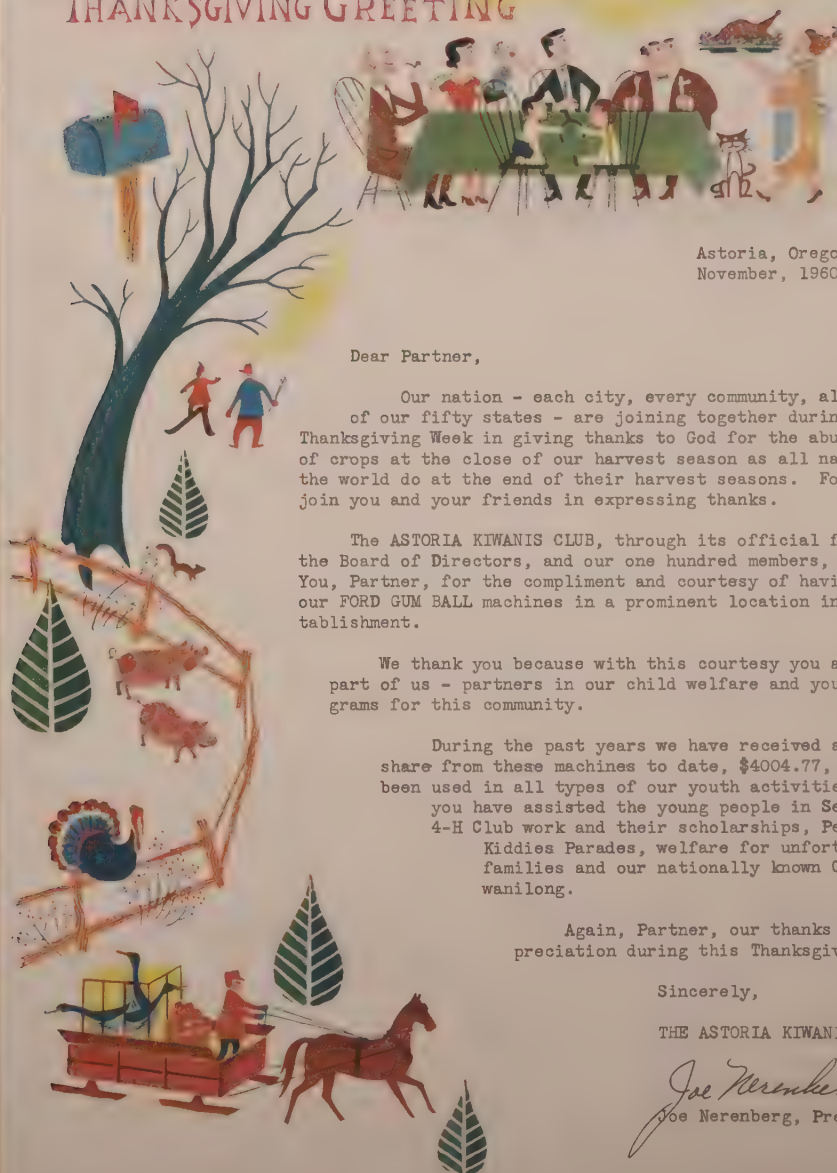 THANKSGIVING GREETING
Astoria, Orego
November, 1960
Dear Partner,
Our nation - each city, every community, al
of our fifty states - are joining together durin
Thanksgiving Week in giving thanks to God for the abu
of crops at the close of our harvest season as all na
the world do at the end of their harvest seasons. Fo
join you and your friends in expressing thanks.
The ASTORIA KIWANIS CLUB, through its official f
the Board of Directors, and our one hundred members,
You, Partner, for the compliment and courtesy of havi
our FORD GUM BALL machines in a prominent location in
tablishment.
We thank you because with this courtesy you a
part of us - partners in our child welfare and you
grams for this community.
During the past years we have received a
share from these machines to date, $4004.77,
been used in all types of our youth activitie
you have assisted the young people in Se
4-H Club work and their scholarships, Pe
Kiddies Parades, welfare for unfort
families and our nationally known C
wanilong.
Again, Partner, our thanks
preciation during this Thanksgiv
Sincerely,
THE ASTORIA KIWANI
Joe Nerenbe
Joe Nerenberg, Pre